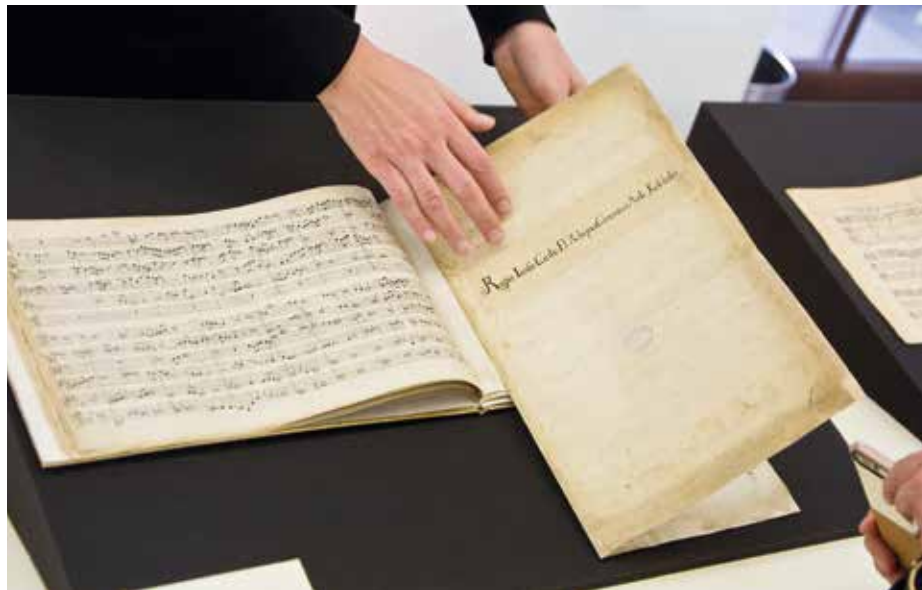 Regis Iussu Cantio Et Reliqua Canonica Arte Resoluta